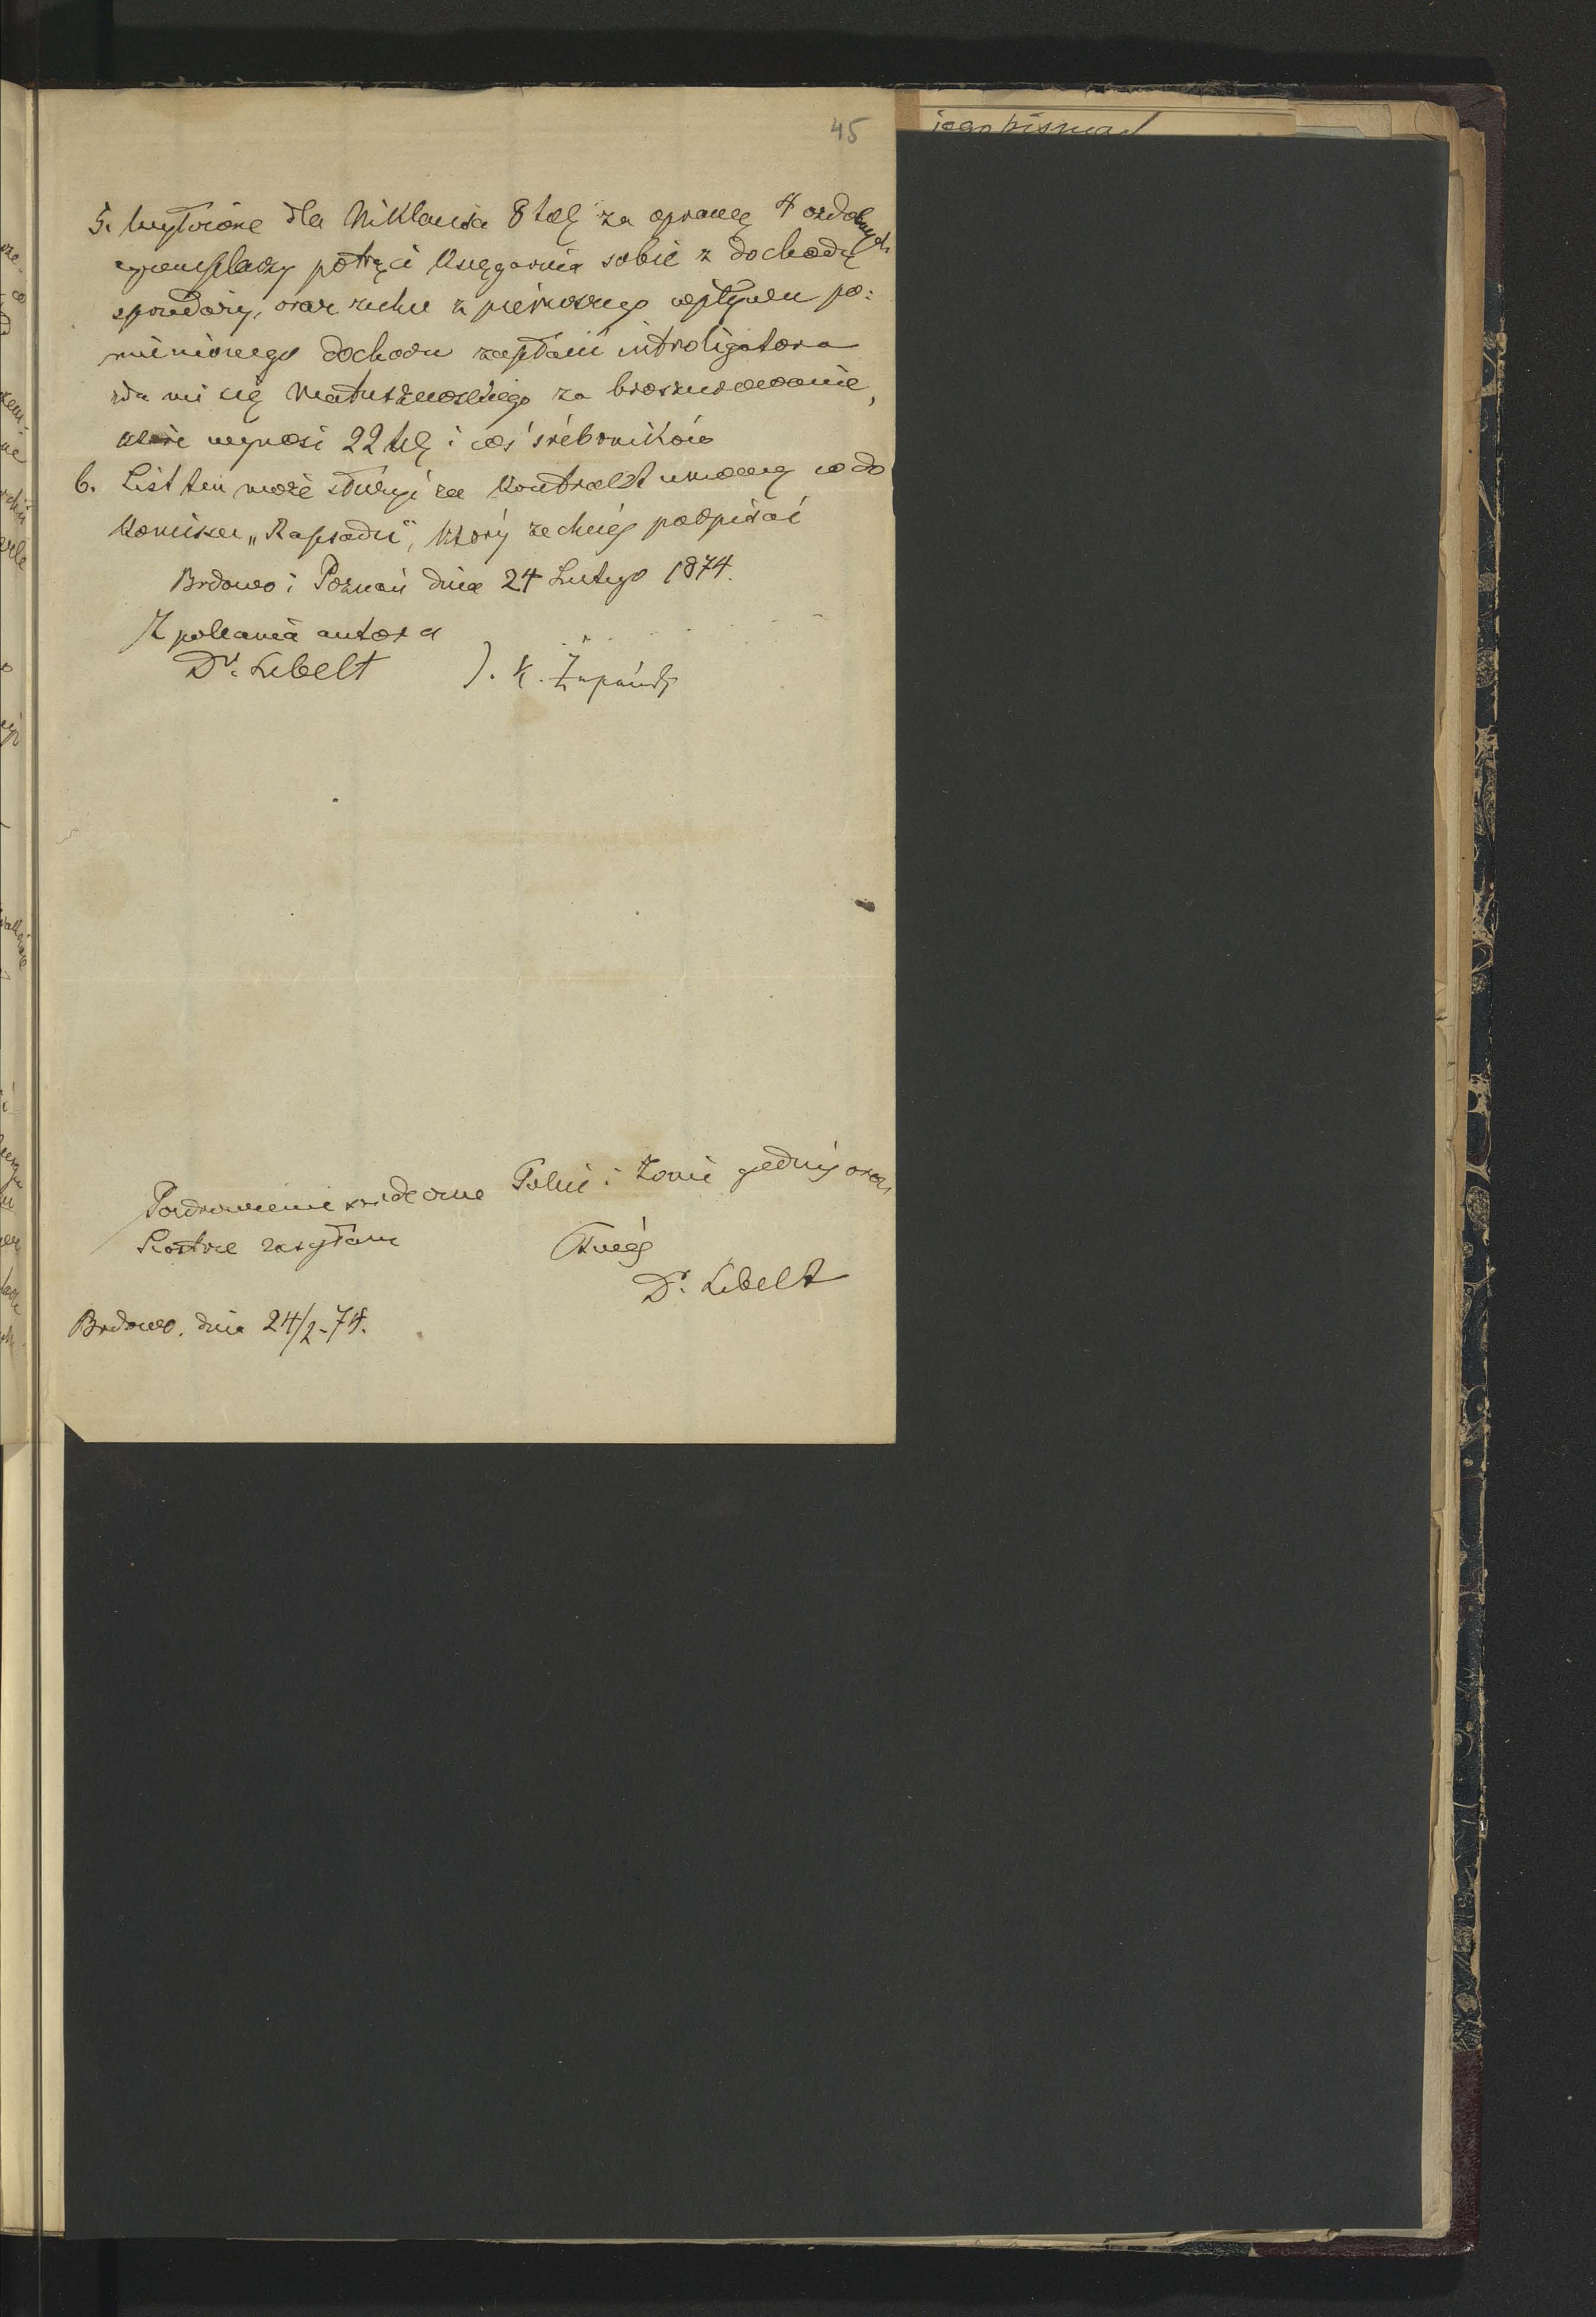 45
5. Wyłożone dla Niklausa 8 tal za oprawę 4 ozdobnych
egzemplarzy potrąci Księgarnia sobie z dochodu
sprzedaży, oraz zechce z pierwszego wpływu po=
mienionego dochodu zapłacić introligatora
zda mi się Matuszewskiego za broszurowanie,
które wynosi 22 tal i coś śrebrników
6. List ten może służyć za Kontrakt umowy co do
Komisu „Rapsodu", który zechciéj podpisać
Brdowo i Poznań dnia 24 Lutego 1874.
Z polecenia autora
Dr. Libelt J. K. Żupański
Pozdrowienie serdeczne Tobie i Żonie godnéj oraz
Siostrze zasyłam
Twój
Dr. Libelt
Brdowo, dnia 24/2-74.